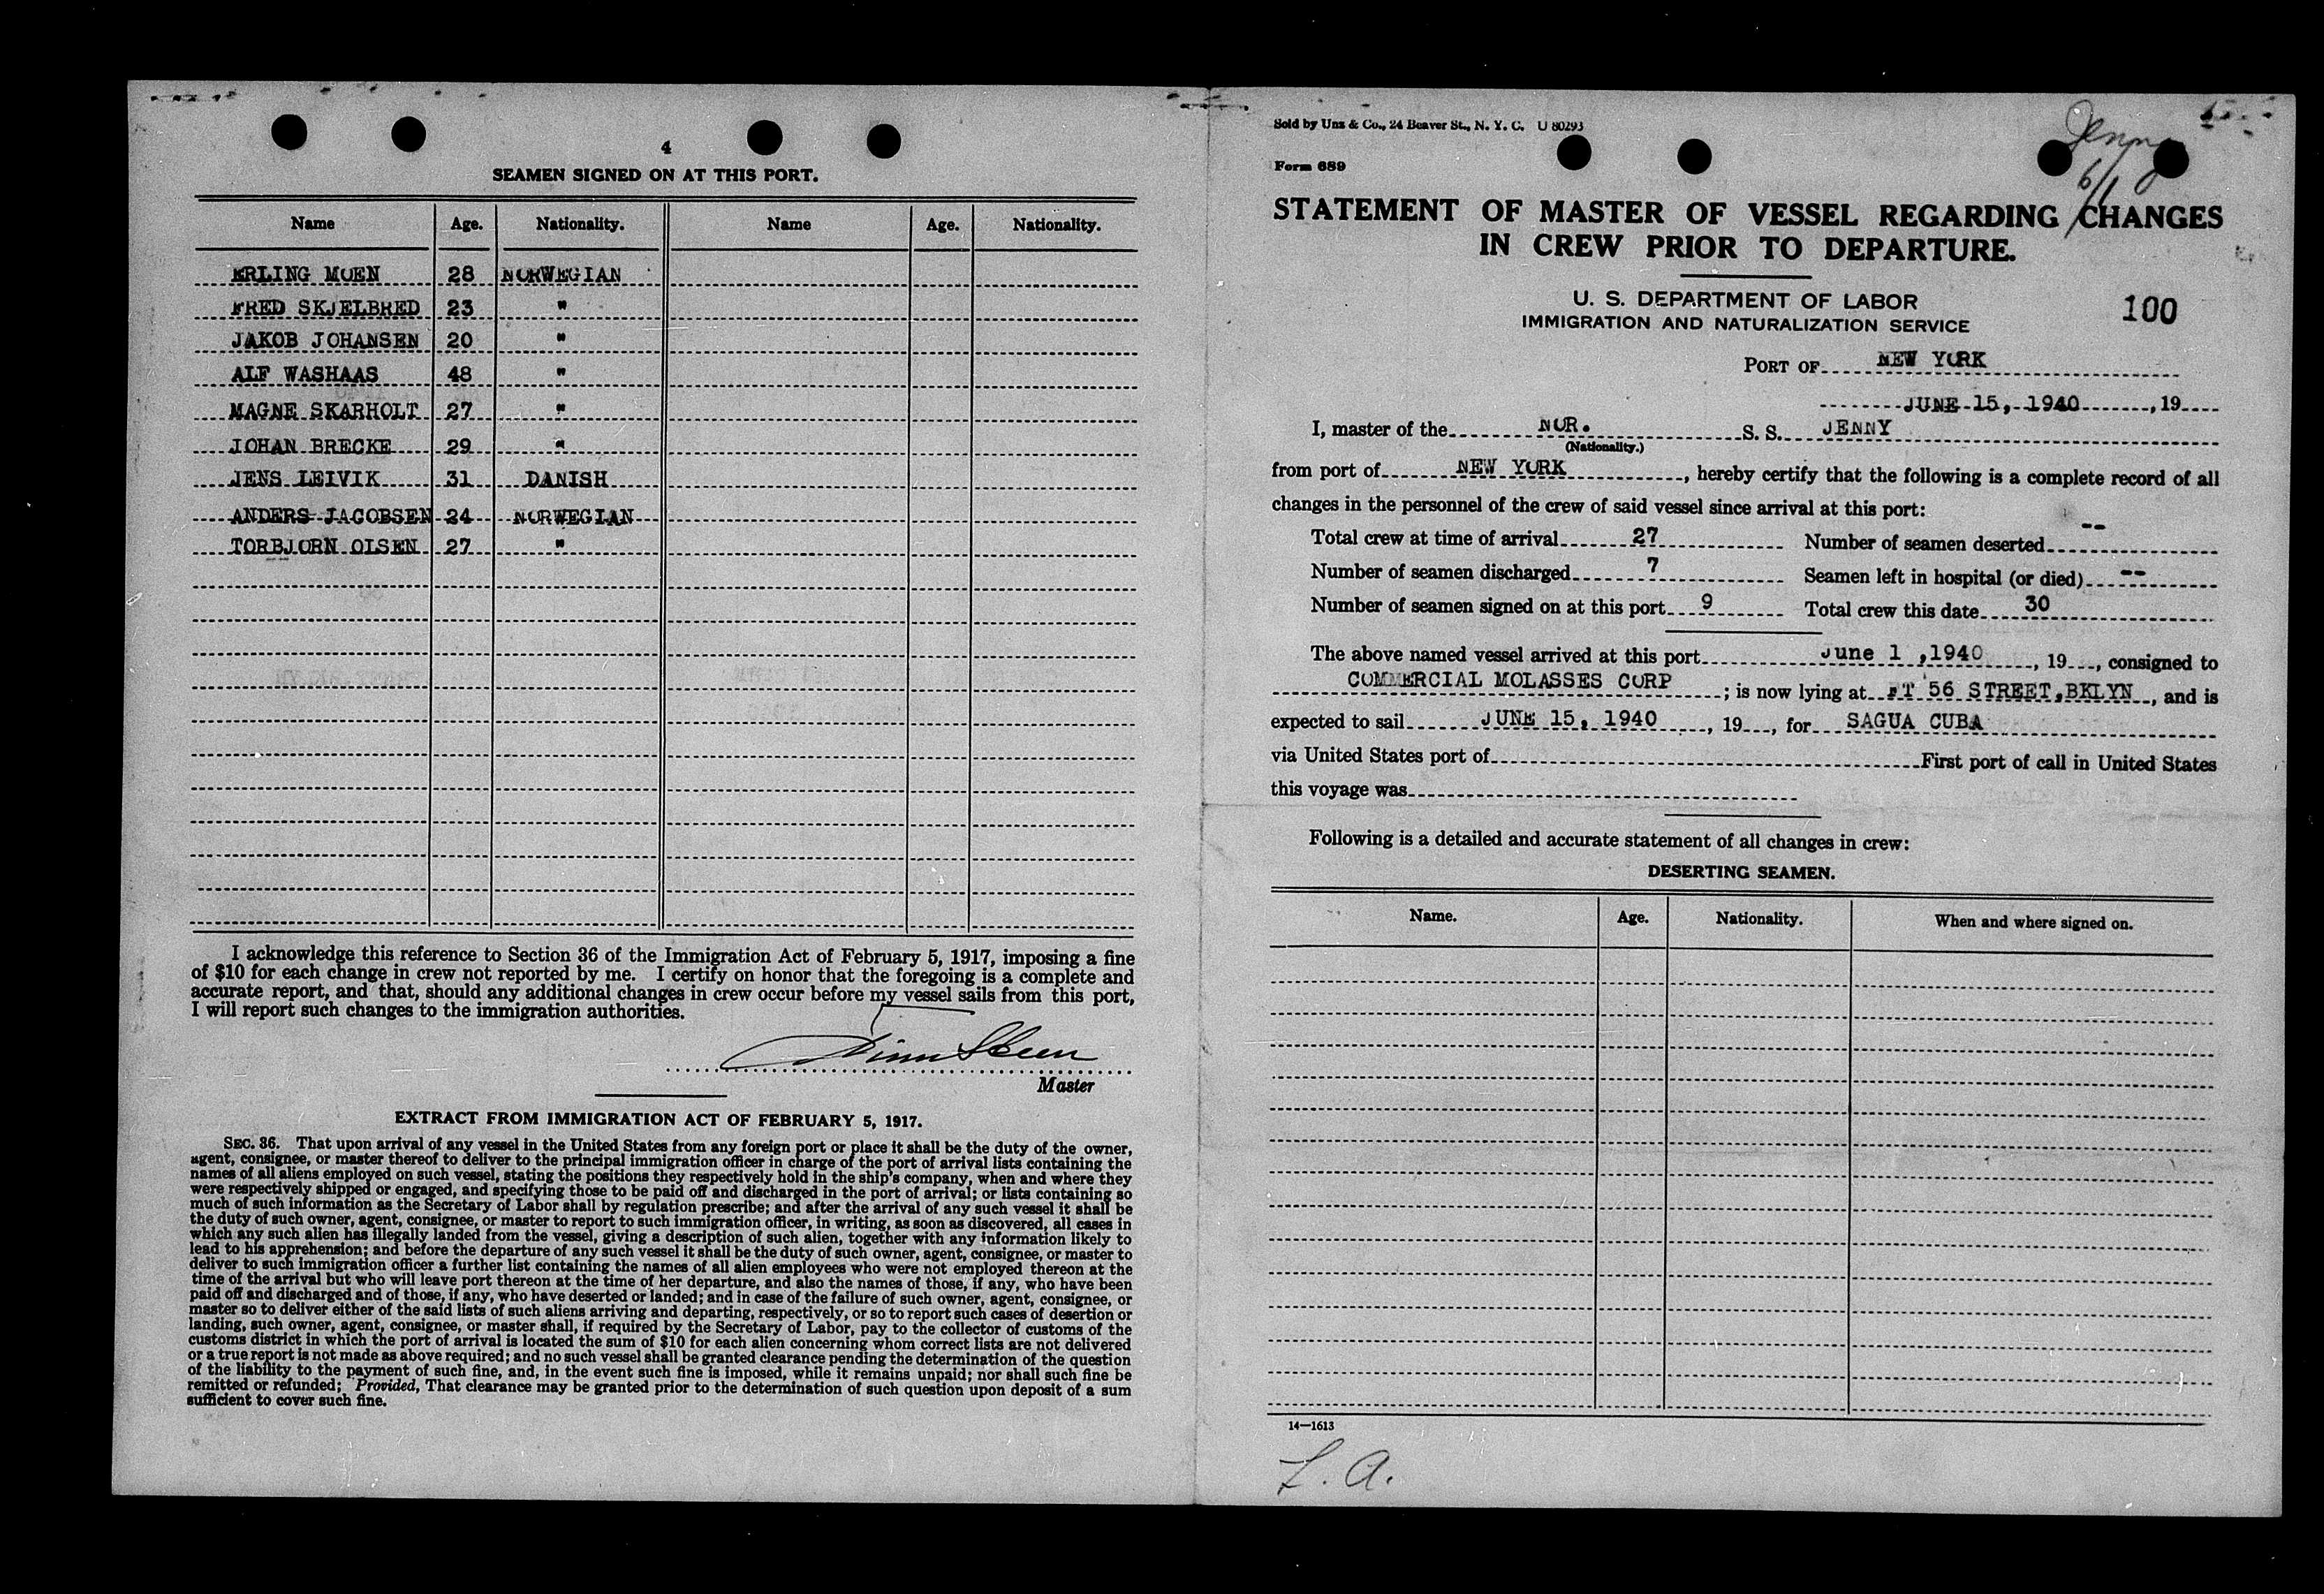 4
SEAMEN SIGNED ON AT THIS PORT.
Name Age. Nationality. Name Age. Nationality.
ERLING MOEN 28 NORWEGIAN
FRED SKJELBRED 23 "
JAKOB JOHANSEN 20 "
ALF WASHAAS 48 "
MAGNE SKARHOLT 27 "
JOHAN BRECKE 29 "
JENS LEIVIK 31 DANISH
ANDERS JACOBSEN 24 NORWEGIAN
TORBJORN OLSEN 27 "
I acknowledge this reference to Section 36 of the Immigration Act of February 5, 1917, imposing a fine
of $10 for each change in crew not reported by me. I certify on honor that the foregoing is a complete and
accurate report, and that, should any additional changes in crew occur before my vessel sails from this port,
I will report such changes to the immigration authorities.
Master
EXTRACT FROM IMMIGRATION ACT OF FEBRUARY 5, 1917.
SEC. 36. That upon arrival of any vessel in the United States from any foreign port or place it shall be the duty of the owner,
agent, consignee, or master thereof to deliver to the principal immigration officer in charge of the port of arrival lists containing the
names of all aliens employed on such vessel, stating the positions they respectively hold in the ship's company, when and where they
were respectively shipped or engaged, and specifying those to be paid off and discharged in the port of arrival; or lists containing so
much of such information as the Secretary of Labor shall by regulation prescribe; and after the arrival of any such vessel it shall be
the duty of such owner, agent, consignee, or master to report to such immigration officer, in writing, as soon as discovered, all cases in
which any such alien has illegally landed from the vessel, giving a description of such alien, together with any information likely to
lead to his apprehension; and before the departure of any such vessel it shall be the duty of such owner, agent, consignee, or master to
deliver to such immigration officer a further list containing the names of all alien employees who were not employed thereon at the
time of the arrival but who will leave port thereon at the time of her departure, and also the names of those, if any, who have been
paid off and discharged and of those, if any, who have deserted or landed; and in case of the failure of such owner, agent, consignee, or
master so to deliver either of the said lists of such aliens arriving and departing, respectively, or so to report such cases of desertion or
landing, such owner, agent, consignee, or master shall, if required by the Secretary of Labor, pay to the collector of customs of the
customs district in which the port of arrival is located the sum of $10 for each alien concerning whom correct lists are not delivered
or a true report is not made as above required; and no such vessel shall be granted clearance pending the determination of the question
of the liability to the payment of such fine, and, in the event such fine is imposed, while it remains unpaid; nor shall such fine be
remitted or refunded; Provided, That clearance may be granted prior to the determination of such question upon deposit of a sum
sufficient to cover such fine.
Sold by Unz & Co., 24 Beaver St., N. Y. C. U 80293
Jenny
6/1
Form 689
STATEMENT OF MASTER OF VESSEL REGARDING CHANGES
IN CREW PRIOR TO DEPARTURE.
U. S. DEPARTMENT OF LABOR
IMMIGRATION AND NATURALIZATION SERVICE
100
PORT OF NEW YORK
JUNE 15, 1940, 19
I, master of the NOR. S. S. JENNY
(Nationality.)
from port of NEW YORK, hereby certify that the following is a complete record of all
changes in the personnel of the crew of said vessel since arrival at this port:
Total crew at time of arrival 27 Number of seamen deserted --
Number of seamen discharged 7 Seamen left in hospital (or died) --
Number of seamen signed on at this port 9 Total crew this date 30
The above named vessel arrived at this port June 1 ,1940, 19, consigned to
COMMERCIAL MOLASSES CORP; is now lying at FT 56 STREET,BKLYN, and is
expected to sail JUNE 15, 1940, 19, for SAGUA CUBA
via United States port of First port of call in United States
this voyage was
Following is a detailed and accurate statement of all changes in crew:
DESERTING SEAMEN.
Name. Age. Nationality. When and where signed on.
14—1613
L. A.